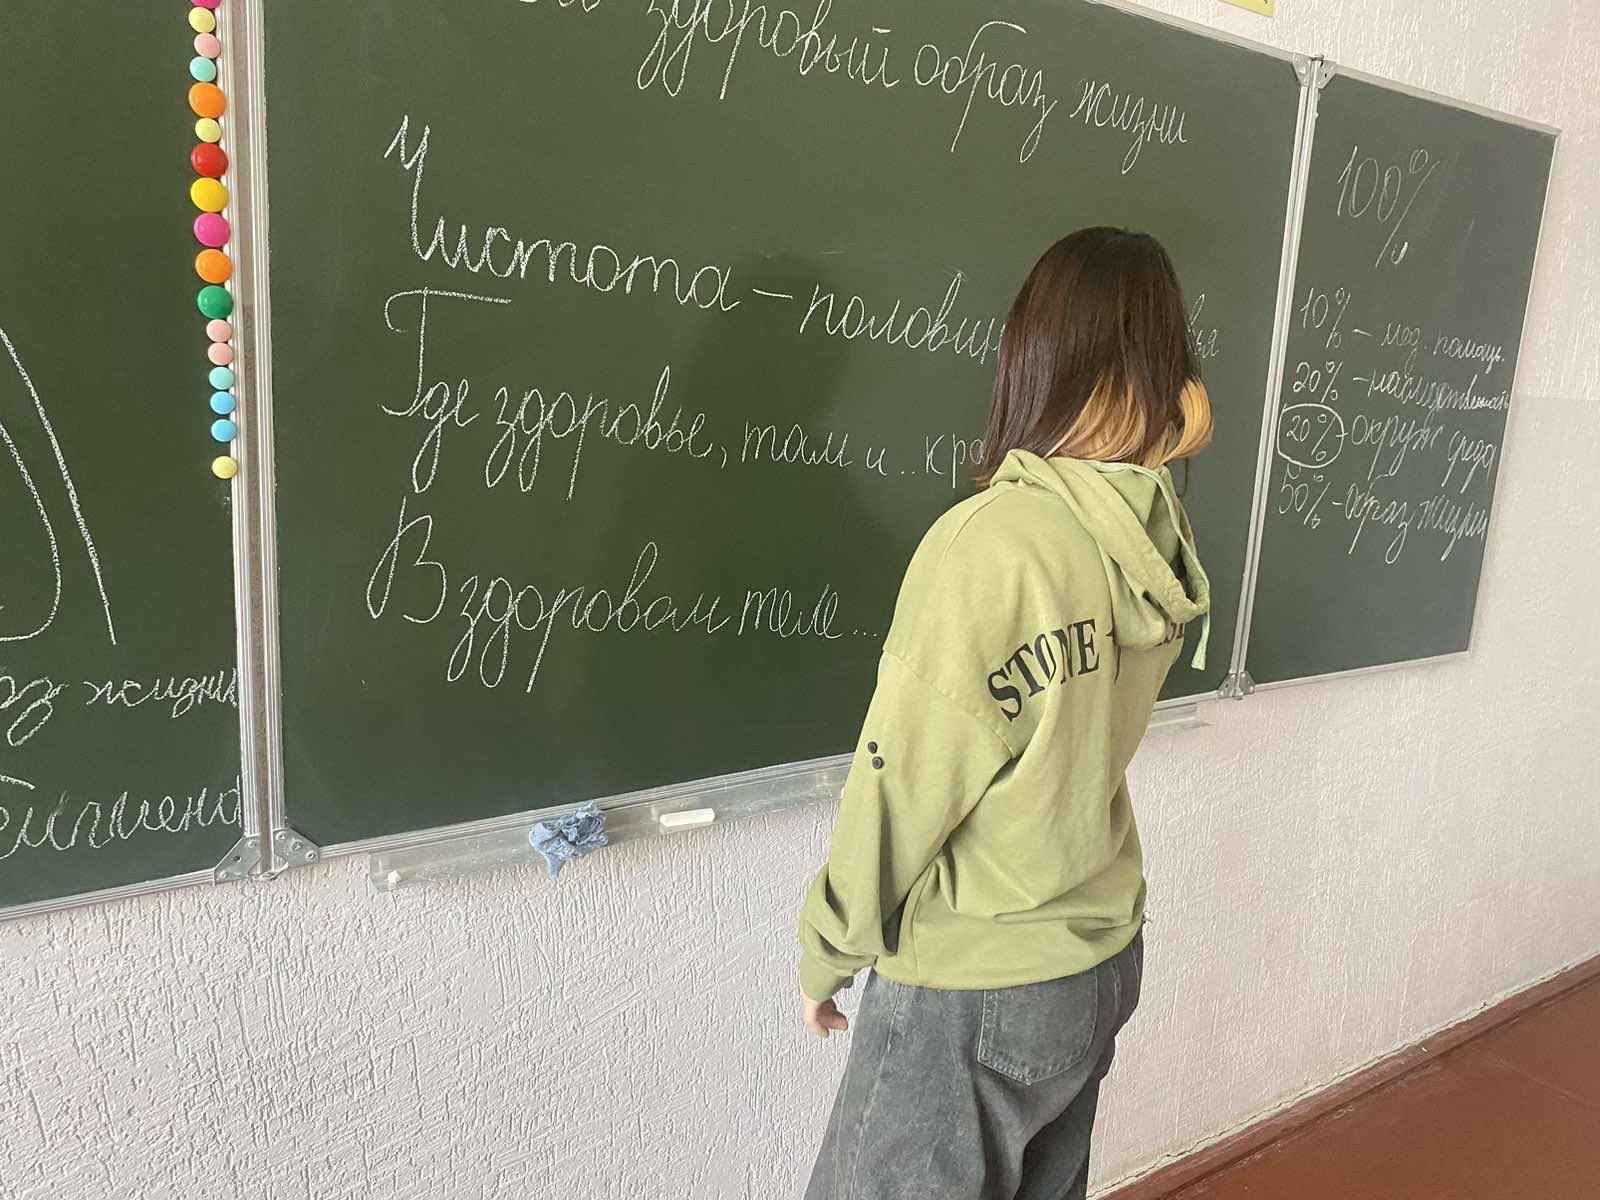 здоровый образ жизни
Чистота – половин вья
Где здоровье, там и .. кра
В здоровом теле...
100%
10% – мед. помощь.
20% – наследственность
20% – окруж среда
50% – образ жизни
жизни
STONE